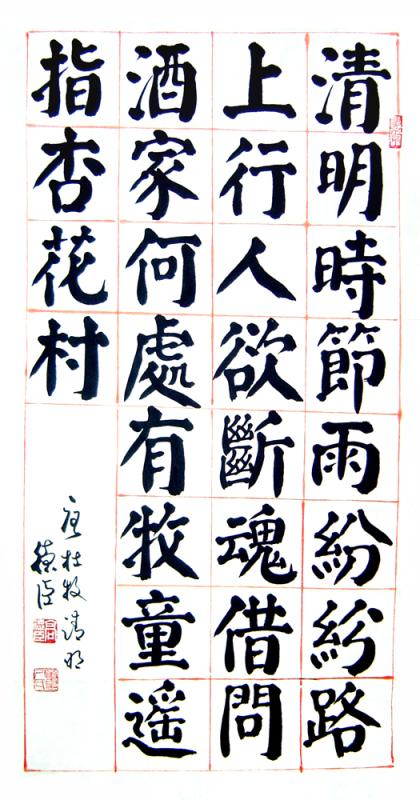 清明時節雨紛紛路
上行人欲斷魂借問
酒家何處有牧童遥
指杏花村
唐杜牧清明